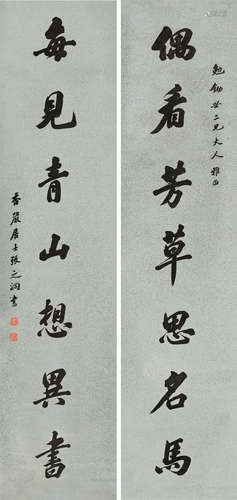 勉勉世二兄大人雅正
偶看芳草思名馬
每見青山想異書
香嚴居士張之洞書